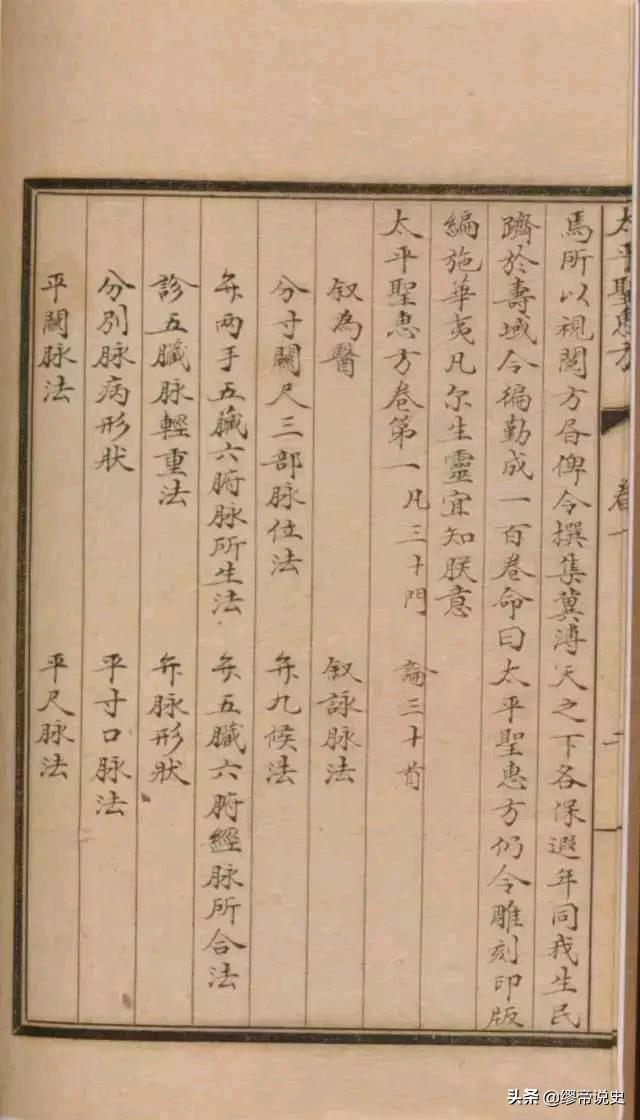 太平聖惠方 卷一 二
焉所以視閱方昬俾令撰集冀溥天之下各保遐年同我生民
躋於壽域今編勤成一百卷命曰太平聖惠方仍令雕刻印版
編施華夷凡尔生靈宜知朕意
太平聖惠方卷第一凡三十門 論三十首
叙為醫 叙詠脉法
分寸關尺三部脉位法 弁九候法
弁兩手五臟六腑脉所生法 弁五臟六腑經脉所合法
診五臟脉輕重法 弁脉形狀
分別脉病形狀 平寸口脉法
平關脉法 平尺脉法
头条 @缪帝说史